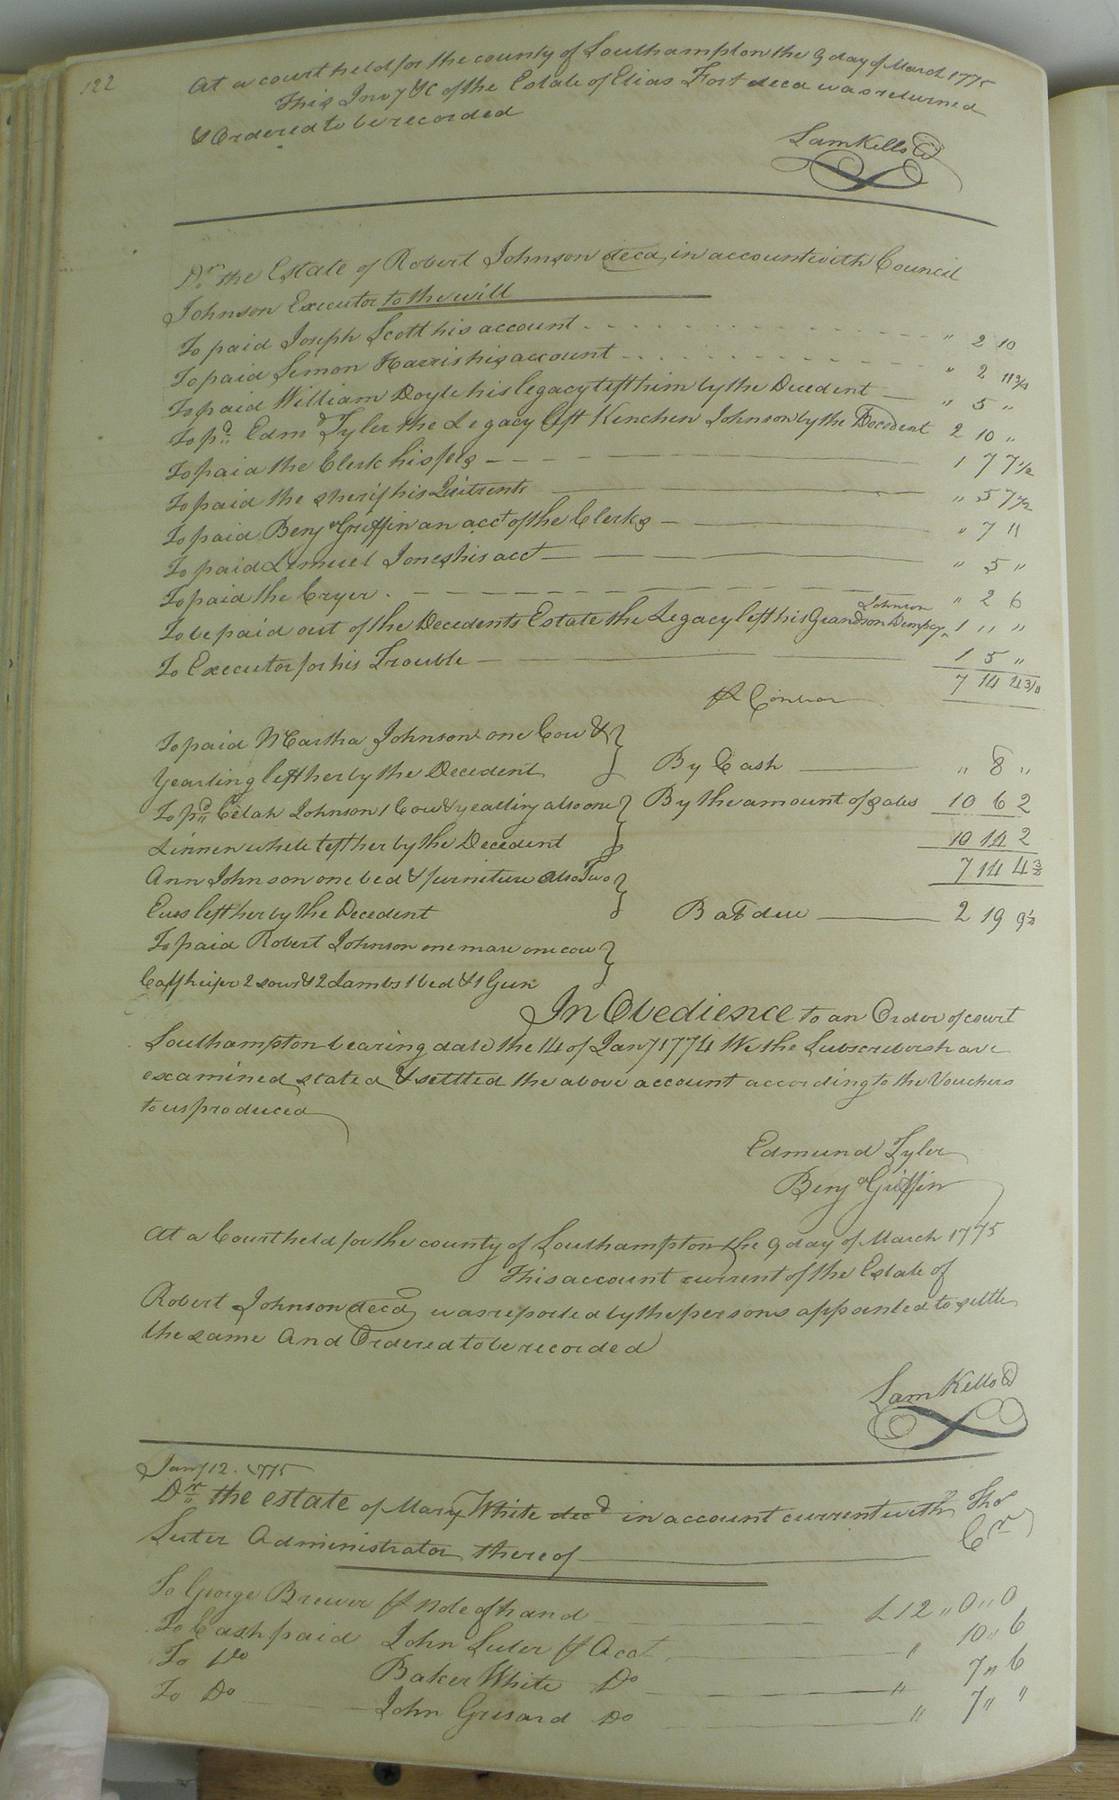 122
At a court held for the county of Southampton the 9 day of March 1775
This Invy &c of the Estate of Elias Fort decd was returned
& Ordered to be recorded
Sam Kello
Dr. the Estate of Robert Johnson decd, in account with Council
Johnson Executor to the will
To paid Joseph Scott his account " 2 10
To paid Simon Harris his account " 2 11 3/4
To paid William Doyle his legacy left him by the Decedent " 5 "
To pd. Edmd Tyler the Legacy left Kenchen Johnson by the Decedent 2 10 "
To paid the Clerk his fees 1 7 7 1/2
To paid the sherif his Quitrents " 5 7 1/2
To paid Benj Griffin an acct of the Clerks " 7 11
To paid Lemuel Jones his acct " 5 "
To paid the Cryer " 2 6
To be paid out of the Decedents Estate the Legacy left his Grandson Dempcy Johnson 1 " "
To Executor for his Trouble 1 5 "
7 14 4 3/4
To paid Martha Johnson one Cow &
Yearling left her by the Decedent
By Cash " 8 "
To pd. Celah Johnson 1 Cow & yearling also one
By the amount of sales 10 6 2
Linnen whele left her by the Decedent
10 14 2
Ann Johnson one bed & furniture also Two
7 14 4
Ewes left her by the Decedent
Bal due 2 19 9 1/2
To paid Robert Johnson one mare one cow
Calf heifer 2 sows & 2 Lambs 1 bed & 1 Gun
In Obedience to an Order of court
Southampton bearing date the 14 of Jany 1774 We the Subscribers have
examined, stated & settled the above account according to the Vouchers
to us produced
Edmund Tyler
Benj Griffin
At a Court held for the county of Southampton the 9 day of March 1775
This account current of the Estate of
Robert Johnson decd, was reported by the persons appointed to settle
the same And Ordered to be recorded
Sam Kello
Jany 12. 1775
Dr. the estate of Mary White decd in account current with Thos
Luter Administrator thereof Cr
To George Brewer p note of hand £ 12 " 0 " 0
To Cash paid John Luter p Acct " 10 " 6
To Do Baker White Do " 7 " 6
To Do John Grisard Do " 7 " "